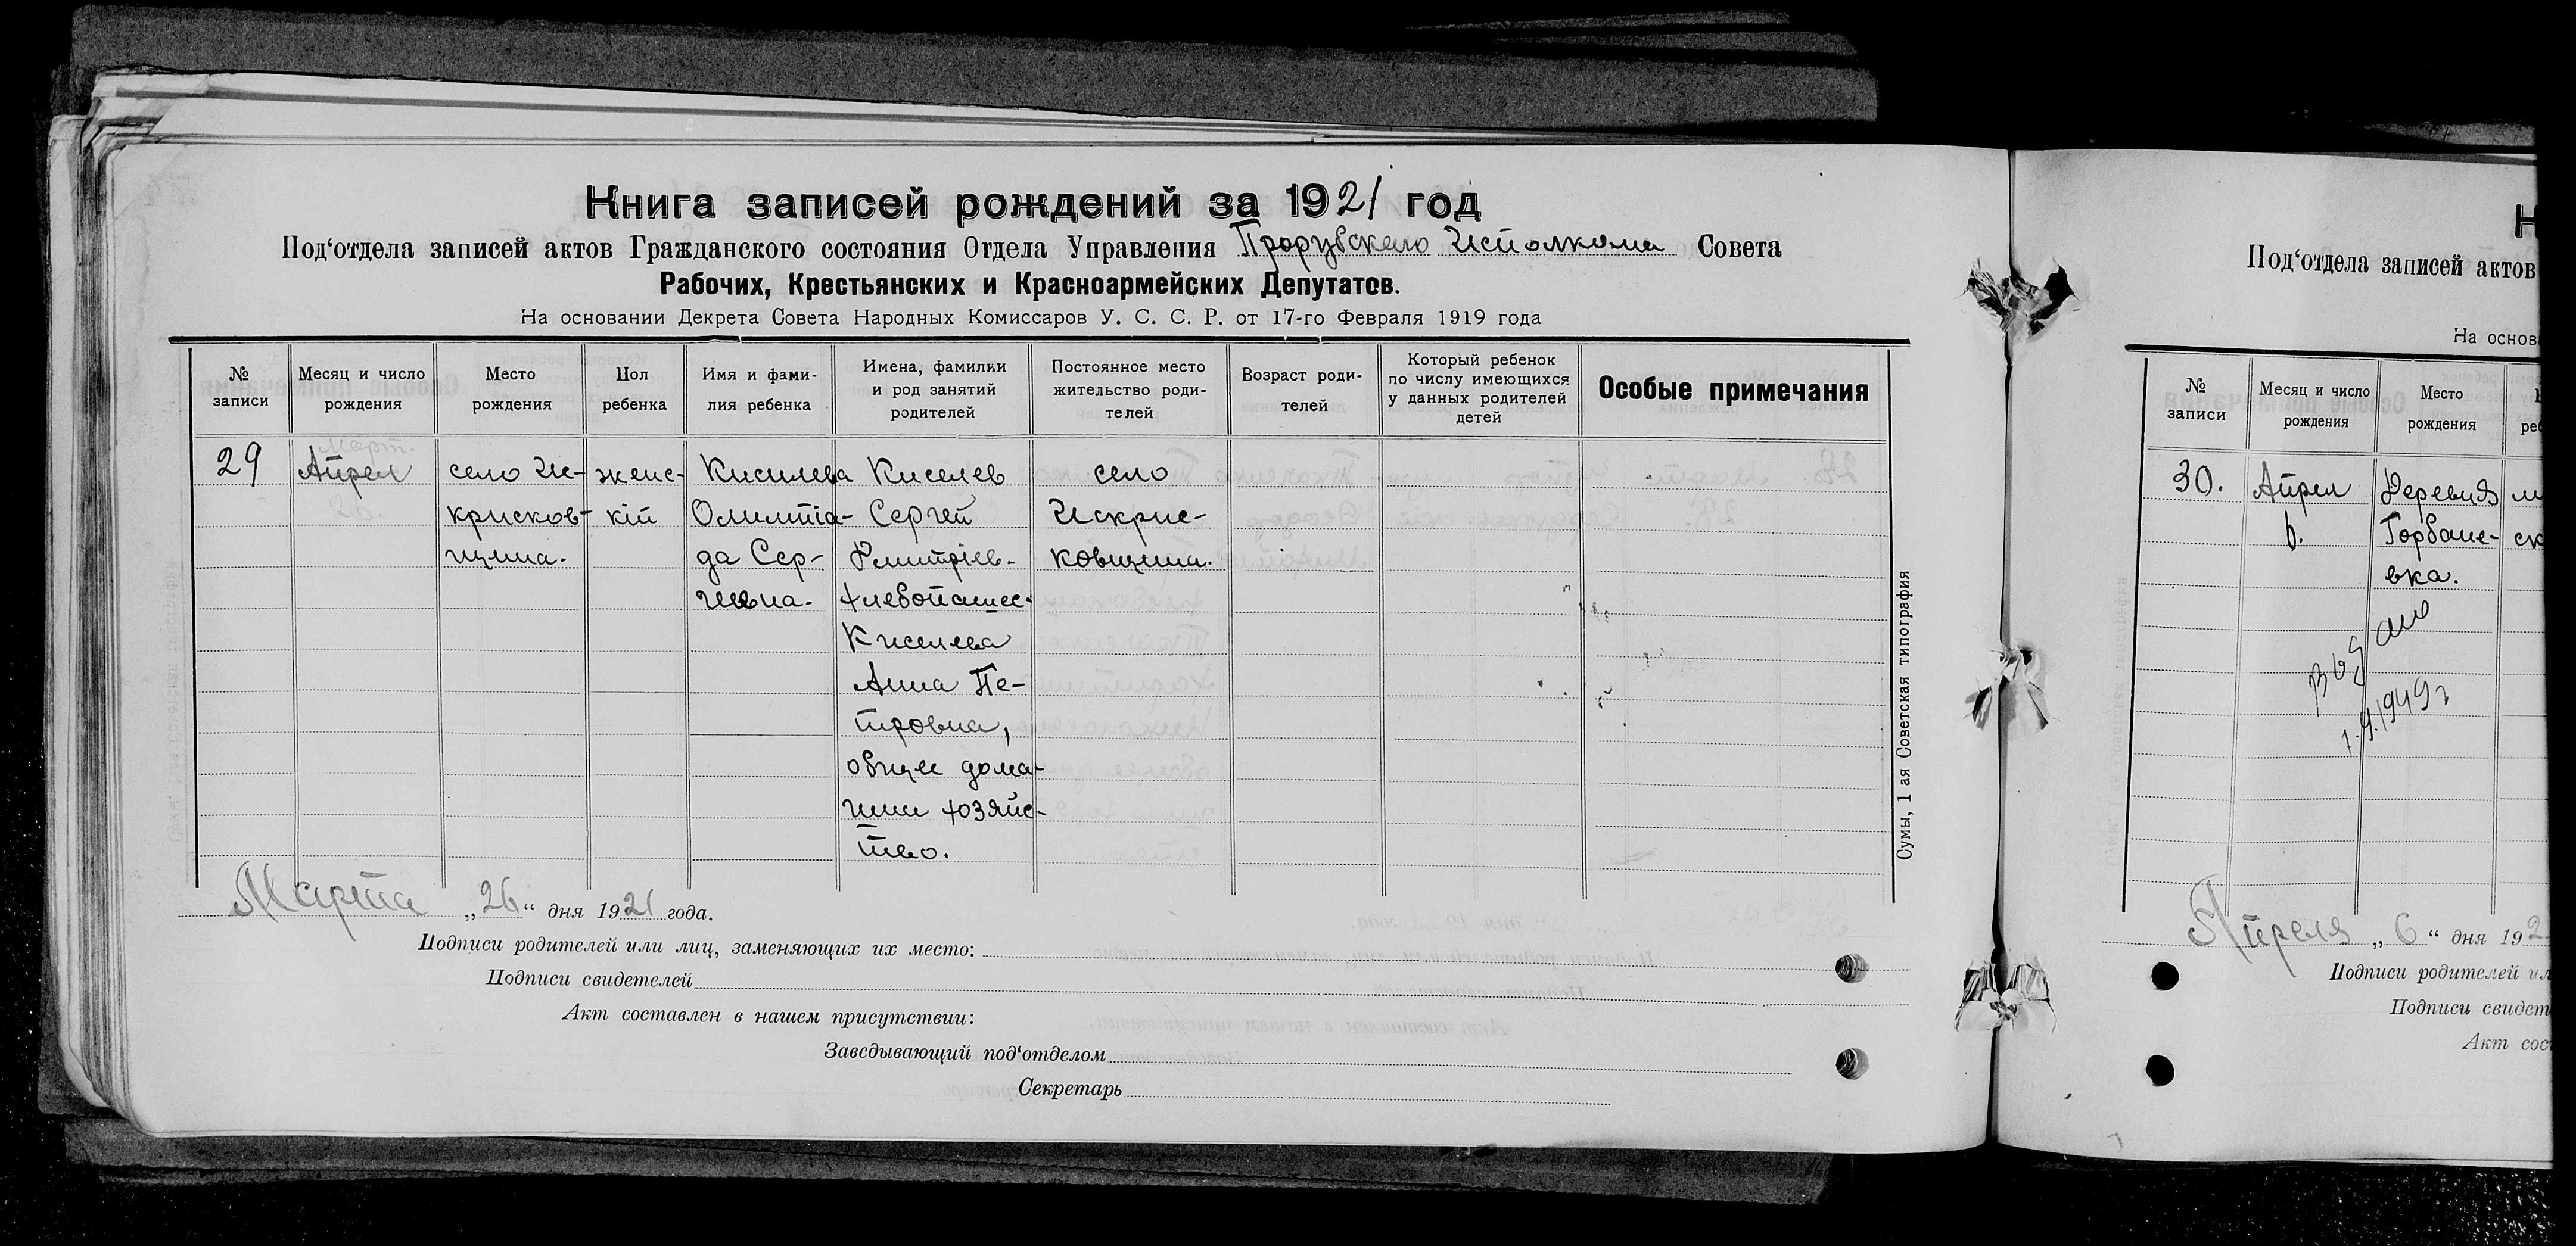 Книга записей рождений за 1921 год
Под‘отдела записей актов Гражданского состояния Отдела Управления Прорубского Исполкома Совета
Рабочих, Крестьянских и Красноармейских Депутатов.
На основании Декрета Совета Народных Комиссаров У. С. С. Р. от 17-го Февраля 1919 года
№ записи
Месяц и число рождения
Место рождения
Пол ребенка
Имя и фами-
лия ребенка
Имена, фамилии
и род занятий
родителей
Постоянное место
жительство роди-
телей
Возраст роди-
телей
Который ребенок
по числу имеющихся
у данных родителей
детей
Особые примечания
29
Март.
Апрел
26.
село Ис-
крисков-
щина.
женс-
кій
Кисилева
Олимпіа-
да Сер-
гиевна.
Киселев
Сергей
Дмитріев.
хлебопашес.
Киселева
Анна Пе-
тровна,
общее дома-
шни хозяйс-
тво.
село
Искрис-
ковщина.
Марта „26“ дня 1921 года.
Подписи родителей или лиц, заменяющих их место:
Подписи свидетелей
Акт составлен в нашем присутствии:
Заведывающий под‘отделом
Секретарь
Сумы, 1 ая Советская типография
Под‘отдела записей актов
На основ
№
записи
Месяц и число
рождения
Место
рождения
реб
30.
Апрел
6.
Деревня
Горбане-
вка.
ск
выдано
1.9.1949г
Апреля „6“ дня 192
Подписи родителей ил
Подписи свидет
Акт сос